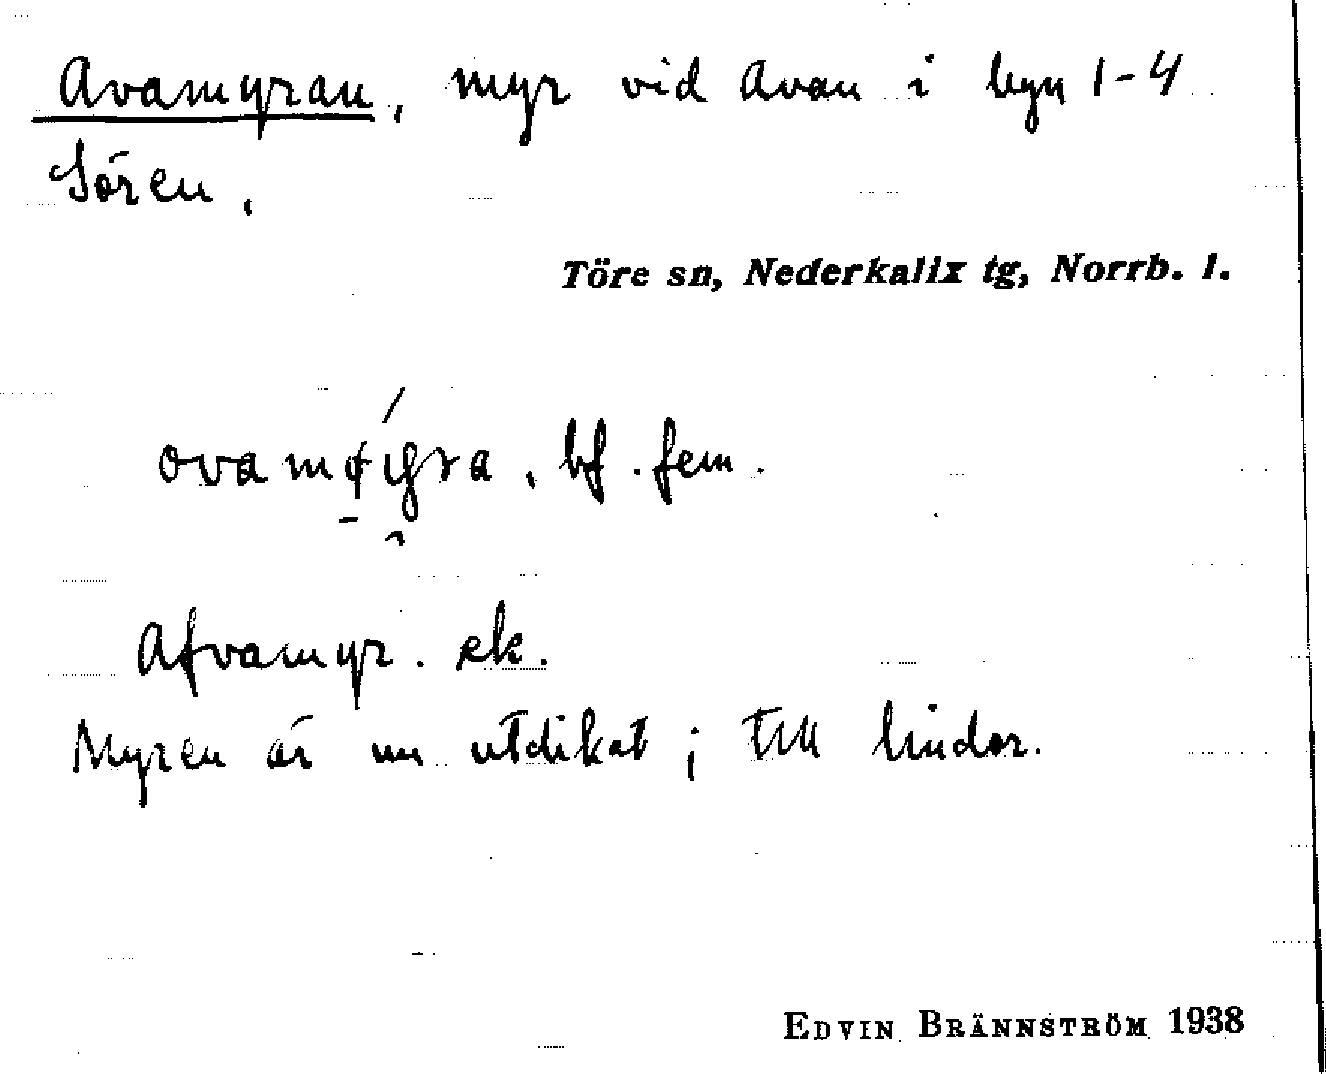 Avamyran, myr vid Avan i byn 1-4
Sören.
Töre sn, Nederkalix tg, Norrb. l.
bf. fem.
Afvamyr. ek.
Myren är nu utdikat; till lindor.
EDVIN BRÄNNSTRÖM 1938